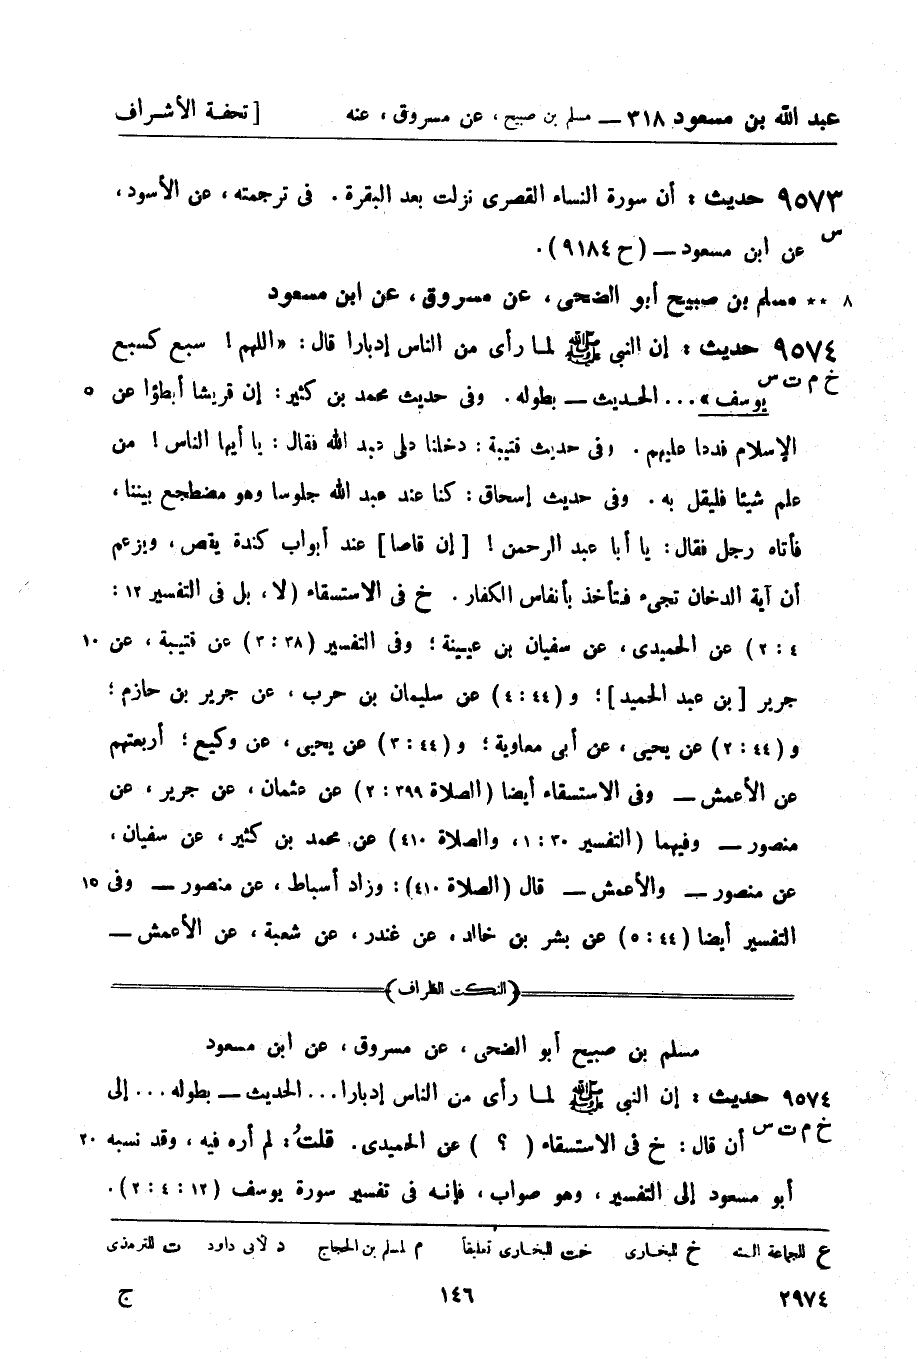 عبد الله بن مسعود ٣١٨ — مسلم بن صبيح ، عن مسروق ، عنه [ تحفة الأشراف
٩٥٧٣ حديث : أن سورة النساء القصرى نزلت بعد البقرة . فى ترجمته ، عن الأسود ،
س عن ابن مسعود — ( ح ٩١٨٤ ) .
٨ ** مسلم بن صبيح أبو الضحى ، عن مسروق ، عن ابن مسعود
٩٥٧٤ حديث : إن النبي ﷺ لما رأى من الناس إدبارا قال : « اللهم ! سبع كسبع
خ م ت س يوسف » ... الحديث — بطوله . وفى حديث محمد بن كثير : إن قريشا أبطؤا عن ٥
الإسلام فدعا عليهم . وفى حديث قتيبة : دخلنا على عبد الله فقال : يا أيها الناس ! من
علم شيئا فليقل به . وفى حديث إسحاق : كنا عند عبد الله جلوسا وهو مضطجع بيننا ،
فأتاه رجل فقال : يا أبا عبد الرحمن ! [ إن قاصا ] عند أبواب كندة يقص ، ويزعم
أن آية الدخان تجىء فتأخذ بأنفاس الكفار . خ فى الاستسقاء ( لا ، بل فى التفسير ١٢ :
٤ : ٢ ) عن الحميدى ، عن سفيان بن عيينة ؛ وفى التفسير ( ٣٨ : ٣ ) عن قتيبة ، عن ١٠
جرير [ بن عبد الحميد ] ؛ و ( ٤٤ : ٤ ) عن سليمان بن حرب ، عن جرير بن حازم ؛
و ( ٤٤ : ٢ ) عن يحيى ، عن أبى معاوية ؛ و ( ٤٤ : ٣ ) عن يحيى ، عن وكيع ؛ أربعتهم
عن الأعمش — وفى الاستسقاء أيضا ( الصلاة ٣٩٩ : ٢ ) عن عثمان ، عن جرير ، عن
منصور — وفيهما ( التفسير ٣٠ : ١ ، والصلاة ٤١٠ ) عن محمد بن كثير ، عن سفيان ،
عن منصور — والأعمش — قال ( الصلاة ٤١٠ ) : وزاد أسباط ، عن منصور — وفى ١٥
التفسير أيضا ( ٤٤ : ٥ ) عن بشر بن خالد ، عن غندر ، عن شعبة ، عن الأعمش —
( النكت الظراف )
مسلم بن صبيح أبو الضحى ، عن مسروق ، عن ابن مسعود
٩٥٧٤ حديث : إن النبي ﷺ لما رأى من الناس إدبارا ... الحديث — بطوله ... إلى
خ م ت س أن قال : خ فى الاستسقاء ( ؟ ) عن الحميدى . قلتُ : لم أره فيه ، وقد نسبه ٢٠
أبو مسعود إلى التفسير ، وهو صواب ، فإنه فى تفسير سورة يوسف ( ١٢ : ٤ : ٢ ) .
ع للجماعة الستة خ للبخارى خت للبخارى تعليقاً م لمسلم بن الحجاج د لأبى داود ت للترمذى
٢٩٧٤ ١٤٦ ج